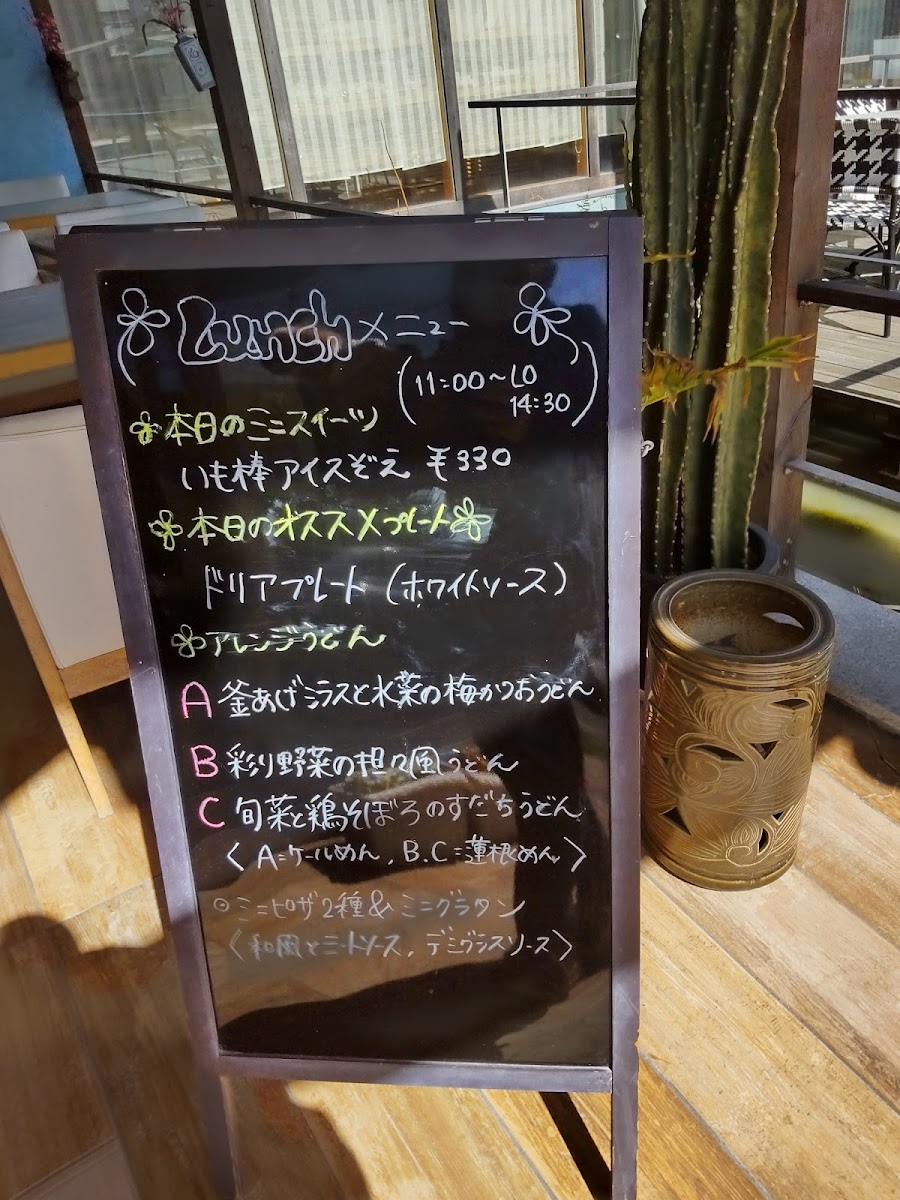 Lunchメニュー
(11:00〜LO
14:30)
本日のミニスイーツ
いも棒アイスぞえ ¥330
本日のオススメプレート
ドリアプレート(ホワイトソース)
アレンジうどん
A 釜あげシラスと水菜の梅かつおうどん
B 彩り野菜の担々風うどん
C 旬菜と鶏そぼろのすだちうどん
〈A=ケールめん, B.C=蓮根めん〉
◎ミニピザ2種&ミニグラタン
〈和風とミートソース, デミグラスソース〉